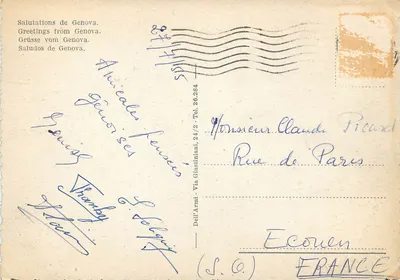 Salutations de Genova.
Greetings from Genova.
Grüsse vom Genova.
Saludos de Genova.
Amicales Pensées
génoises
Dell'Arnat - Via Giustiniani, 24/2 - Tel. 26.284
Monsieur Claude Picard
Rue de Paris
Ecouen
(S. O.) FRANCE